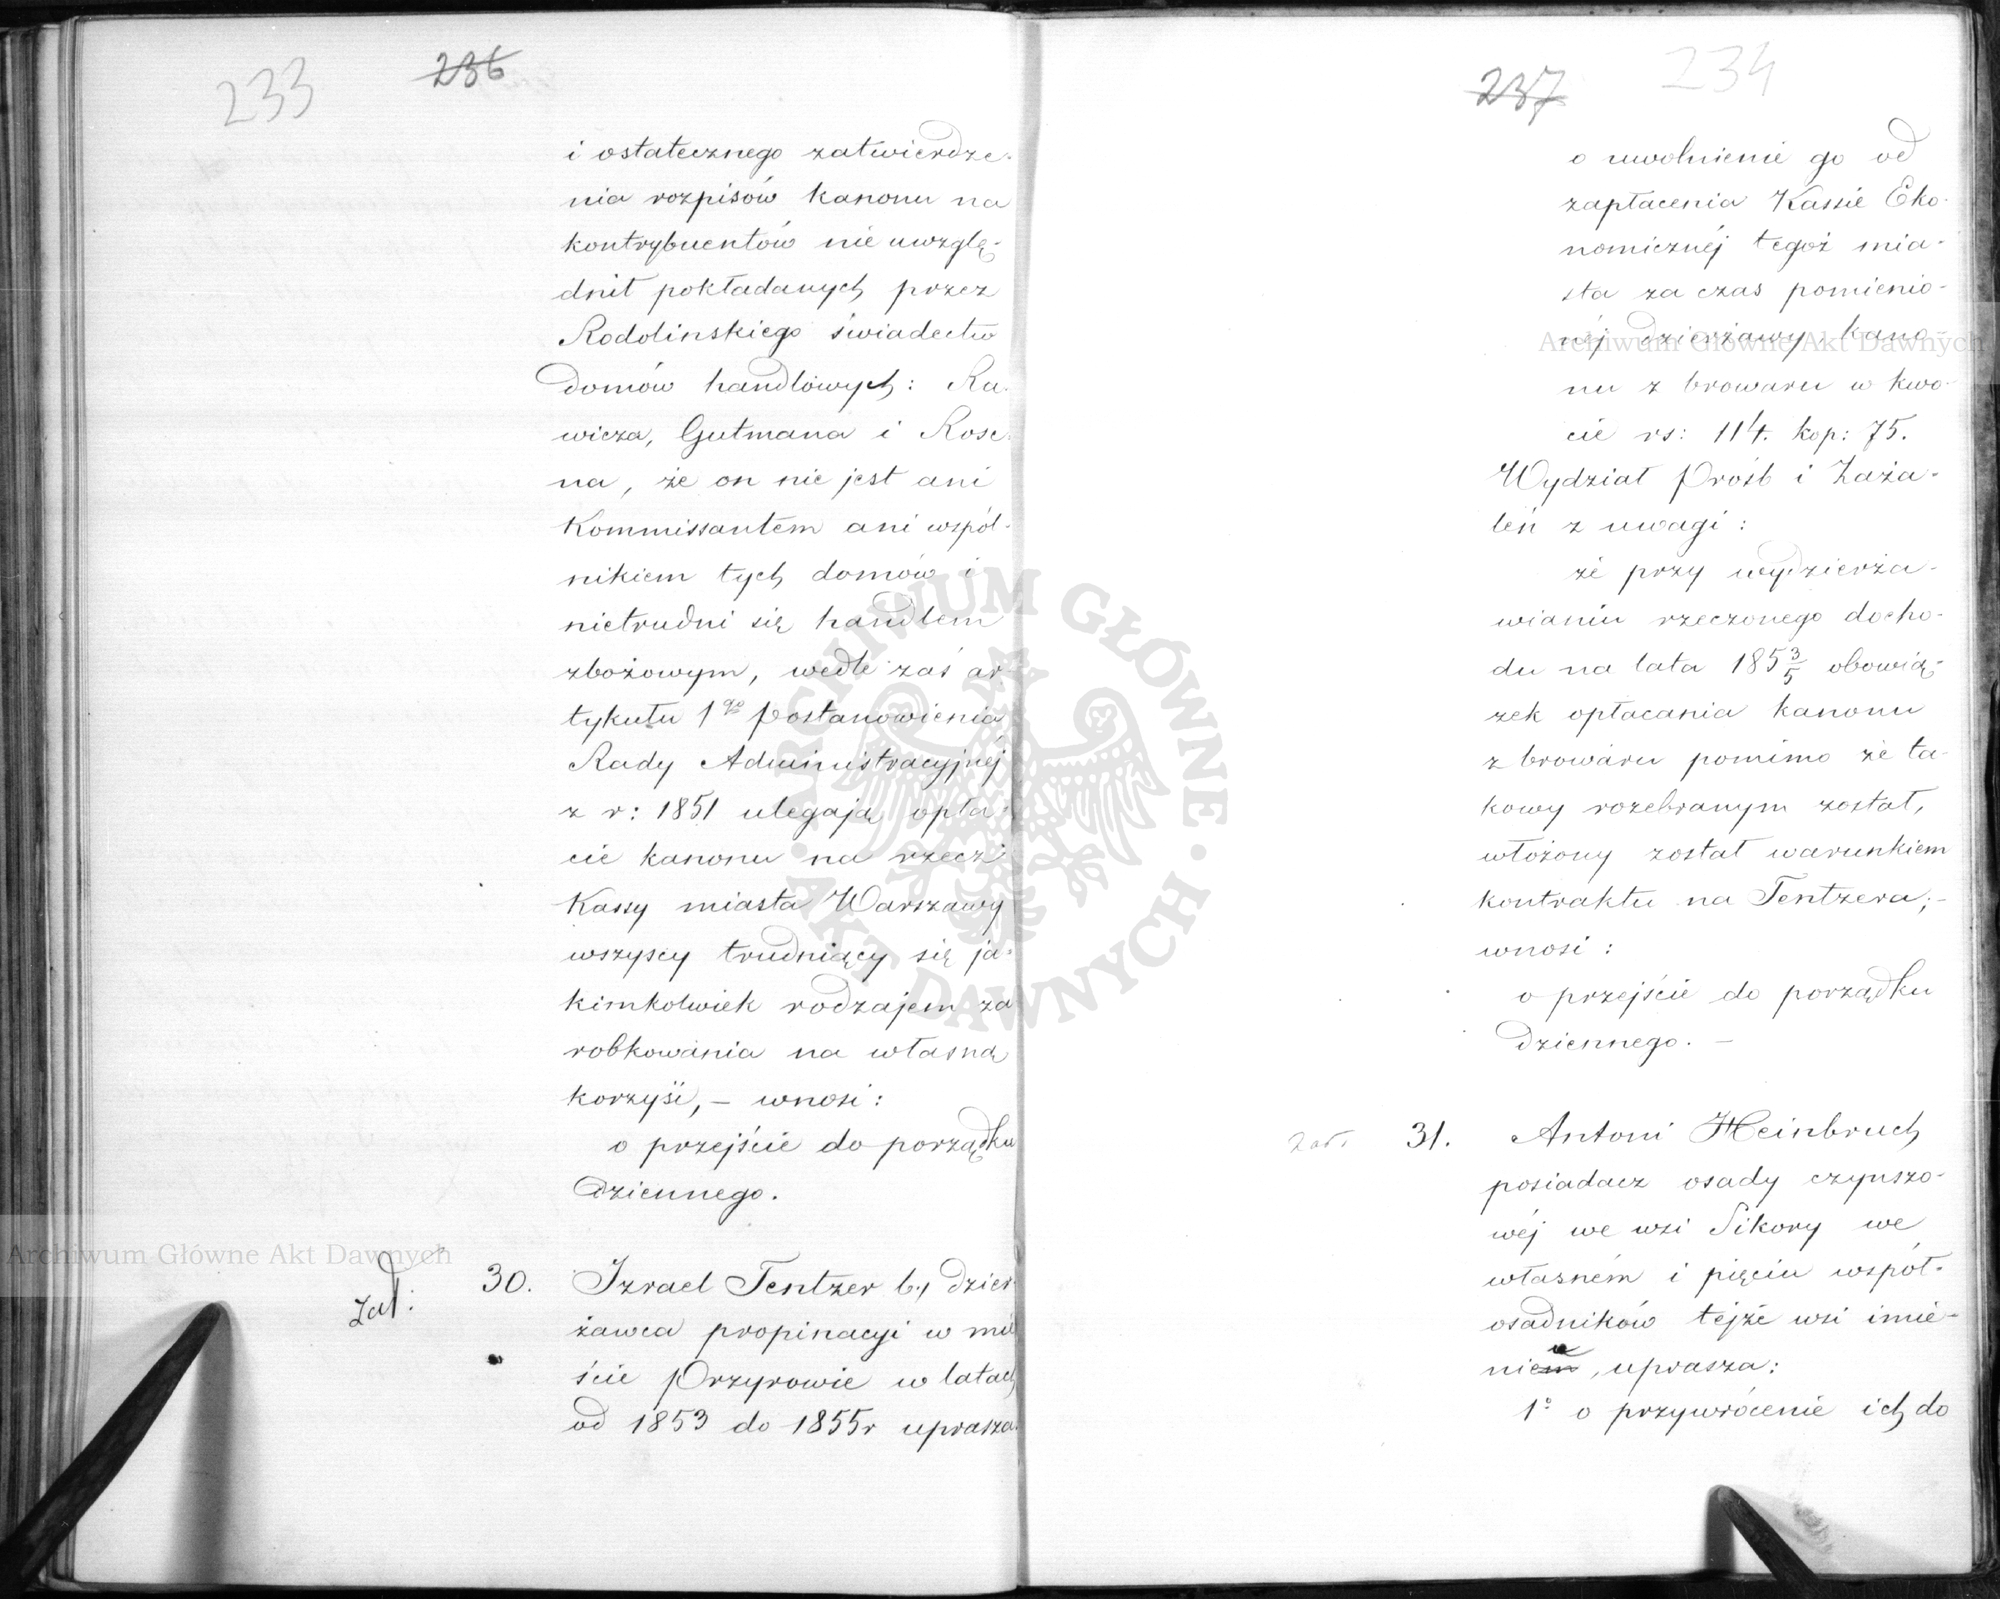 233
236
i ostatecznego zatwierdze-
nia rozpisów kanonu na
kontrybuentów nie uwzglę-
dnił pokładanych przez
Rodolinskiego świadectw
domów handlowych: Ra-
wicza, Gutmana i Rose-
na, że on nie jest ani
Kommissantem ani wspól-
nikiem tych domów i
nietrudni się handlem
zbożowym, wedle zaś ar-
tykułu 1go Postanowienia
Rady Administracyjnéj
z r: 1851 ulegają opła-
cie kanonu na rzecz
Kassy miasta Warszawy
wszyscy trudniący się ja-
kimkolwiek rodzajem za
robkowania na własną
korzyść, — wnosi:
o przejście do porządku
dziennego.
Zał:
30. Izrael Tentzer b. dzier-
żawca propinacyi w mie
ście Przyrowie w latach
od 1853 do 1855r uprasza
237
234
o uwolnienie go od
zapłacenia Kassie Eko-
nomicznéj tegoż mia-
sta za czas pomienio-
néj dzierżawy, kano-
nu z browaru w kwo-
cie rs: 114. kop: 75.
Wydział Próśb i Zaża-
leń z uwagi:
że przy wydzierża-
wianiu rzeczonego docho-
du na lata 185 3/5 obowią-
zek opłacania kanonu
z browaru pomimo że ta-
kowy rozebranym został,
włożony został warunkiem
kontraktu na Tentzera; -
wnosi:
o przejście do porządku
dziennego. —
31. Antoni Heinbruch
posiadacz osady czynszo-
wéj we wsi Sikory we
własném i pięciu współ-
osadników tejże wsi imie-
niem, uprasza:
1° o przywrócenie ich do
Archiwum Główne Akt Dawnych
Archiwum Główne Akt Dawnych
ARCHIWUM GŁÓWNE · AKT DAWNYCH ·